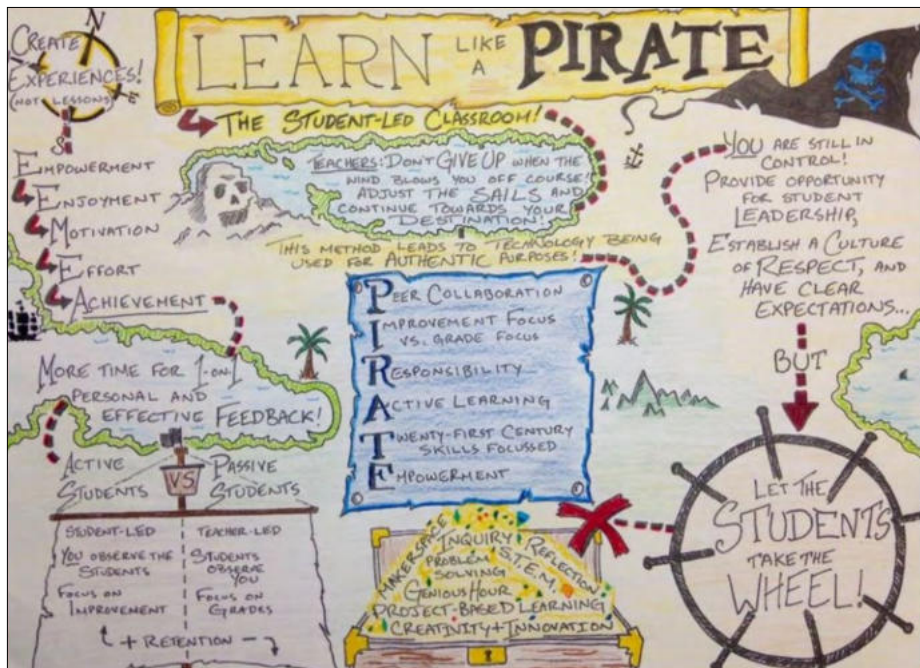 LEARN LIKE A PIRATE
N
CREATE
EXPERIENCES!
(NOT LESSONS)
S
EMPOWERMENT
ENJOYMENT
MOTIVATION
EFFORT
ACHIEVEMENT
MORE TIME FOR 1-ON-1
PERSONAL AND
EFFECTIVE FEEDBACK!
THE STUDENT-LED CLASSROOM!
TEACHERS: DON'T GIVE UP WHEN THE
WIND BLOWS YOU OFF COURSE!
ADJUST THE SAILS AND
CONTINUE TOWARDS YOUR
DESTINATION!
THIS METHOD LEADS TO TECHNOLOGY BEING
USED FOR AUTHENTIC PURPOSES!
YOU ARE STILL IN
CONTROL!
PROVIDE OPPORTUNITY
FOR STUDENT
LEADERSHIP,
ESTABLISH A CULTURE
OF RESPECT, AND
HAVE CLEAR
EXPECTATIONS...
BUT
LET THE
STUDENTS
TAKE THE
WHEEL!
PEER COLLABORATION
IMPROVEMENT FOCUS
VS. GRADE FOCUS
RESPONSIBILITY
ACTIVE LEARNING
TWENTY-FIRST CENTURY
SKILLS FOCUSSED
EMPOWERMENT
ACTIVE STUDENTS
VS
PASSIVE STUDENTS
STUDENT-LED
YOU OBSERVE THE
STUDENTS
FOCUS ON
IMPROVEMENT
TEACHER-LED
STUDENTS
OBSERVE
YOU
FOCUS ON
GRADES
+ RETENTION -
MAKERSPACE
INQUIRY
REFLECTION
PROBLEM
SOLVING
S.T.E.M.
GENIOUS HOUR
PROJECT-BASED LEARNING
CREATIVITY + INNOVATION